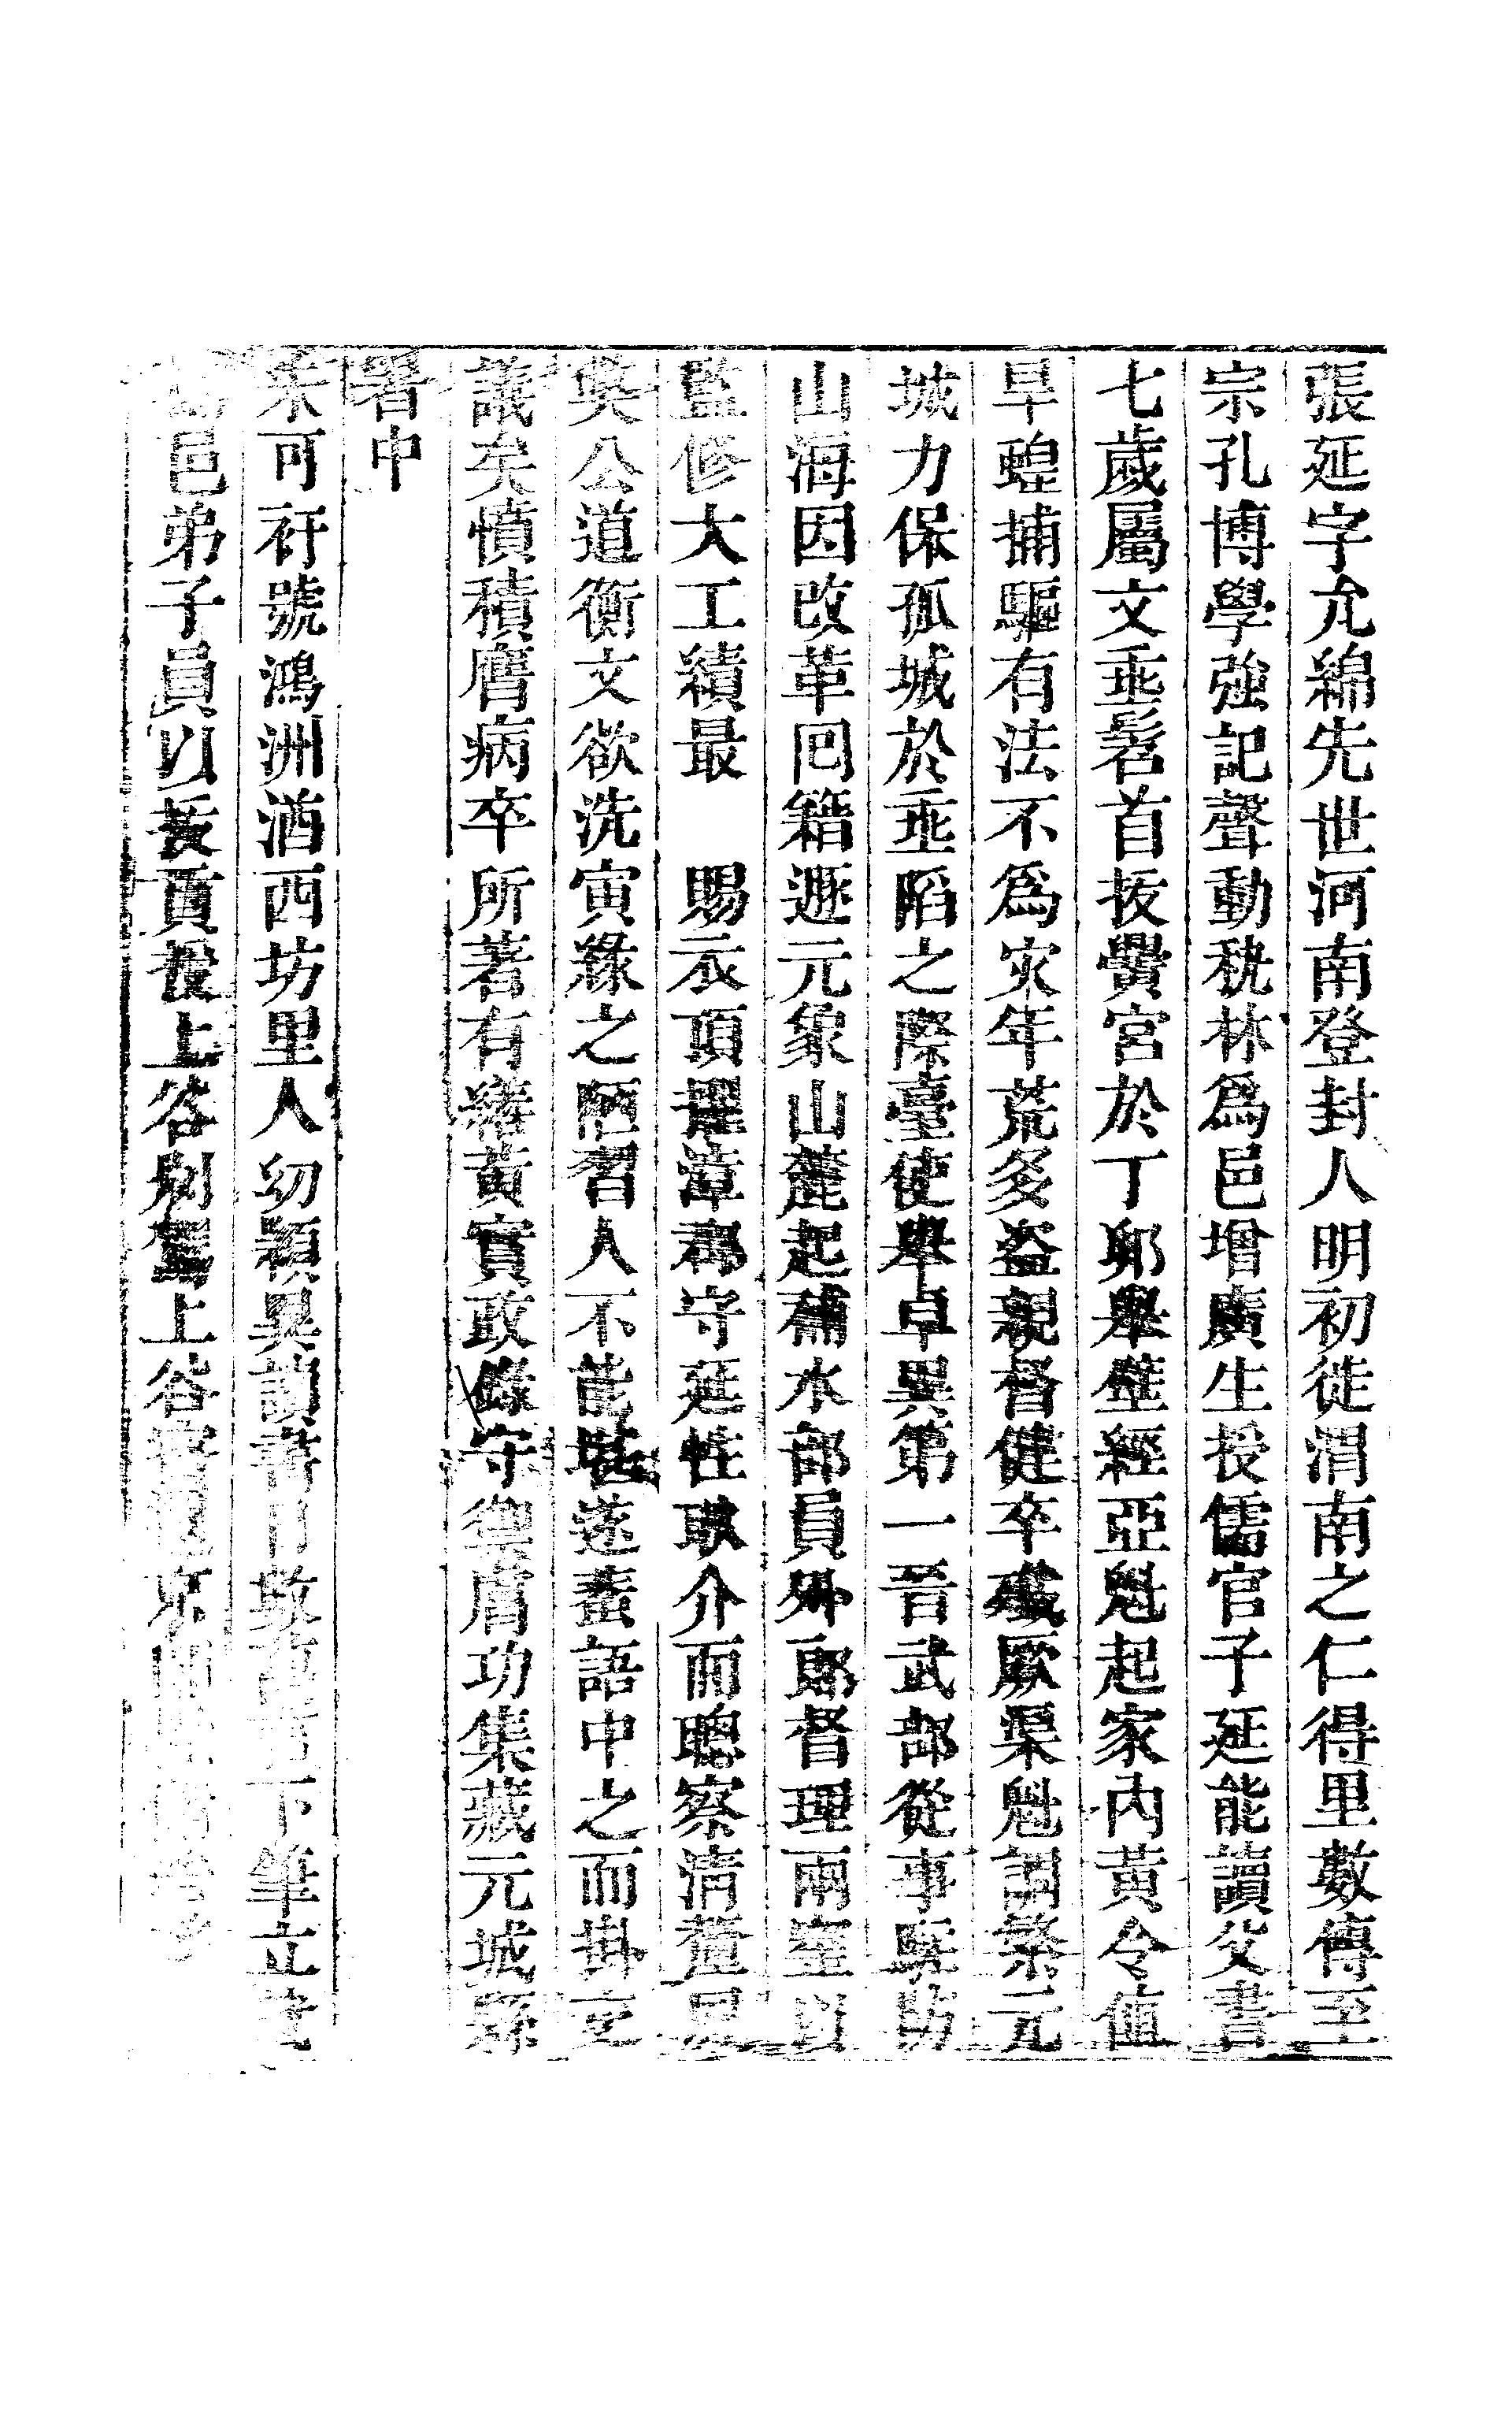 張延字允綿先世河南登封人明初徒渭南之仁得里數傳至
宗孔博學強記聲動秇林爲邑增廣生授儒官子延能讀父書
七歲屬文垂髫首拔黌宮於丁卯舉壁經亞魁起家內黃令值
旱蝗捕驅有法不爲灾年荒多盗親督健卒殲厥渠魁調繁元
城力保孤城於垂陷之際臺使舉卓異第一晉武部從事駐防
山海因改革囘籍遯元象山麓起補水部員外郎督理兩窑以
監修大工績最　賜衣頂擢漳郡守延性耿介而聰察清釐畏
吳公道衡文欲洗寅緣之陋習人不能堪遂蜚語中之而掛吏
議矣憤積膺病卒所著有緒黃實政錄守禦膚功集藏元城縣
署中
朱可衧號鴻洲湭西坊里人幼穎異讀書日數下筆立
邑弟子員以拔貢授上谷别駕上谷京